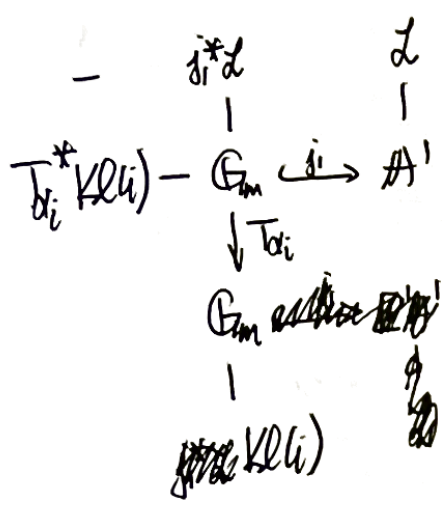 j₁*ℒ ℒ
T_{α_i}^* Kl(i) — 𝔾_m ↪ 𝔸¹
T_{α_i}
𝔾_m
Kl(i)